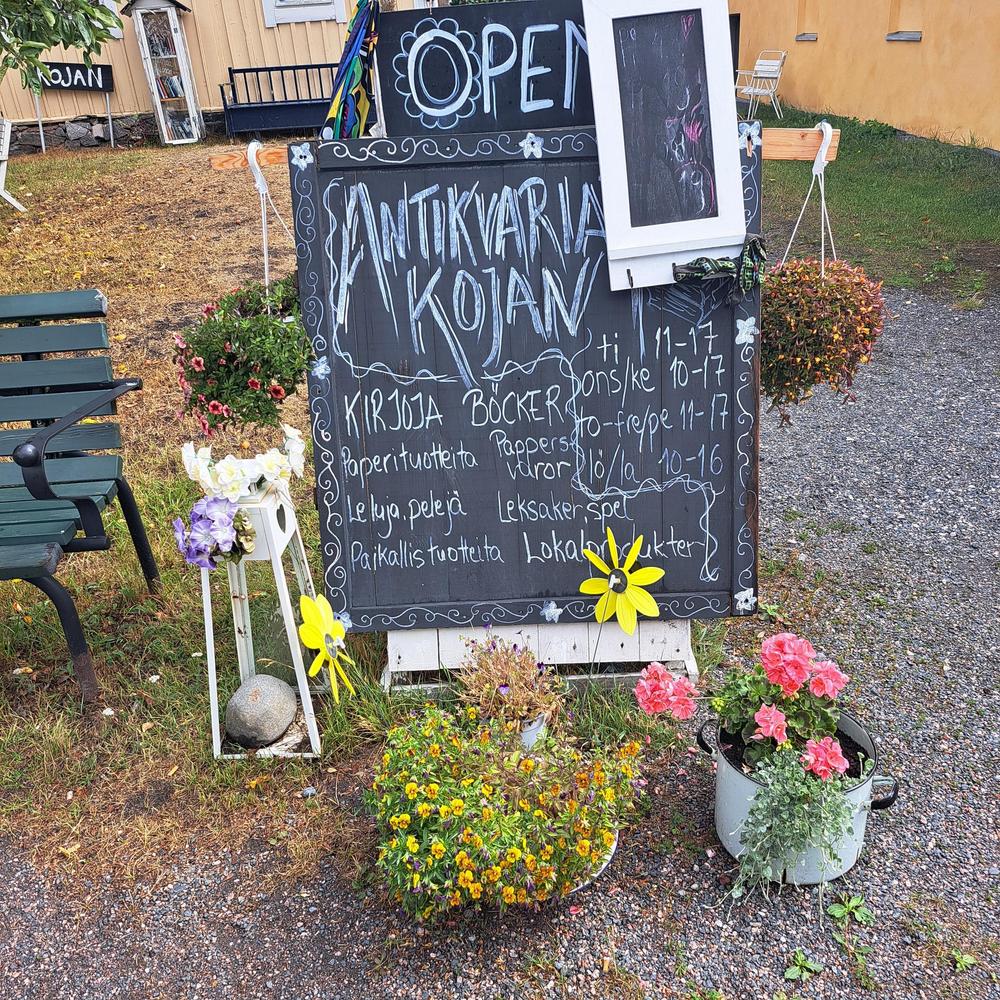 OPEN
KOJAN
ANTIKVARIA
KOJAN
ti 11-17
ons/ke 10-17
to-fre/pe 11-17
lö/la 10-16
KIRJOJA BÖCKER
Paperituotteita Pappersvaror
Leluja, pelejä Leksaker, spel
Paikallistuotteita Lokalprodukter